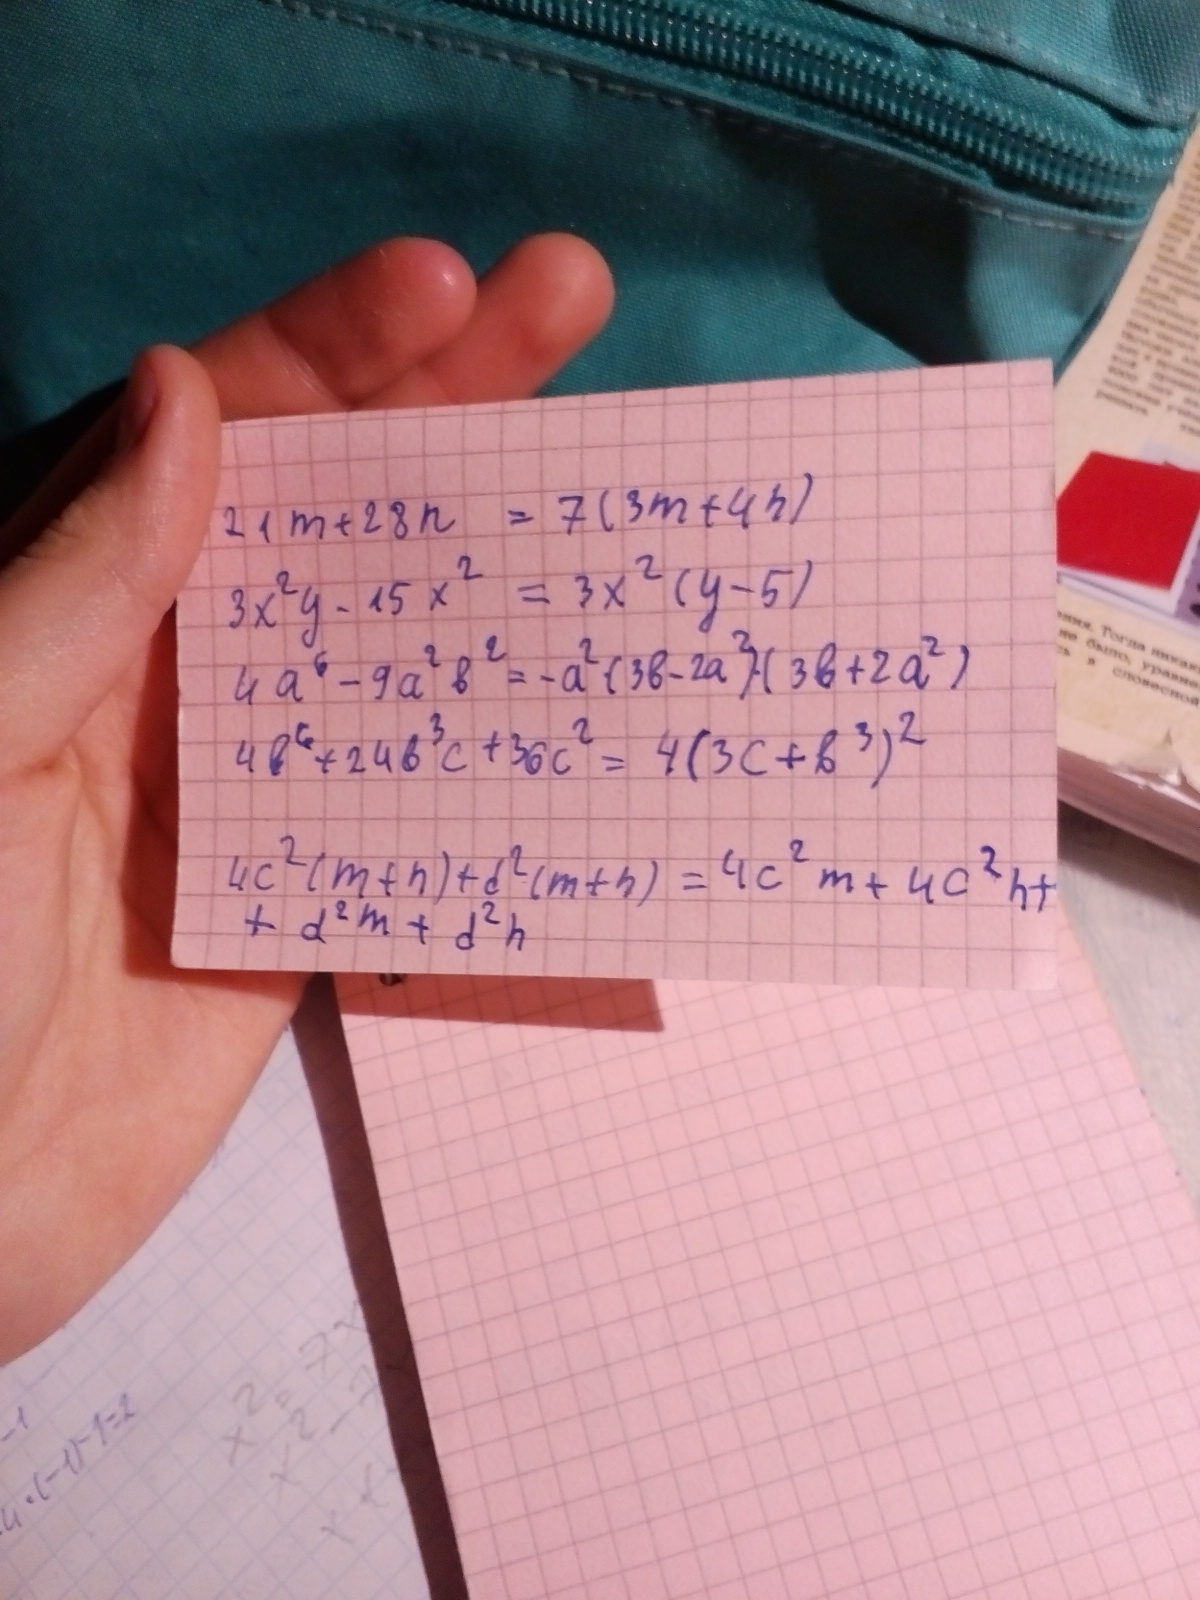 21m+28n = 7(3m+4n)
3x²y-15x² = 3x²(y-5)
4a⁶-9a²b² = -a²(3b-2a²)·(3b+2a²)
4b⁶+24b³c+36c² = 4(3c+b³)²
4c²(m+n)+d²(m+n) = 4c²m+4c²n+
+ d²m + d²n
Тогда
не было,
словесно
-1
4·(-1)-1=2